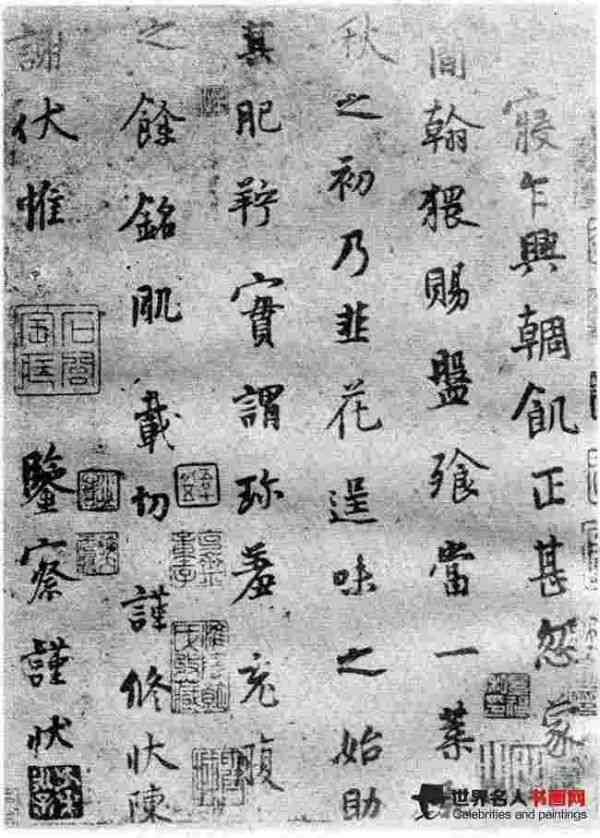 寢乍興輖飢正甚忽蒙
簡翰猥賜盤飧當一葉
秋之初乃韭花逞味之始助
其肥羜實謂珍羞充腹
之餘銘肌載切謹修狀陳
謝伏惟鑒察謹狀
世界名人书画网
Celebrities and paintings